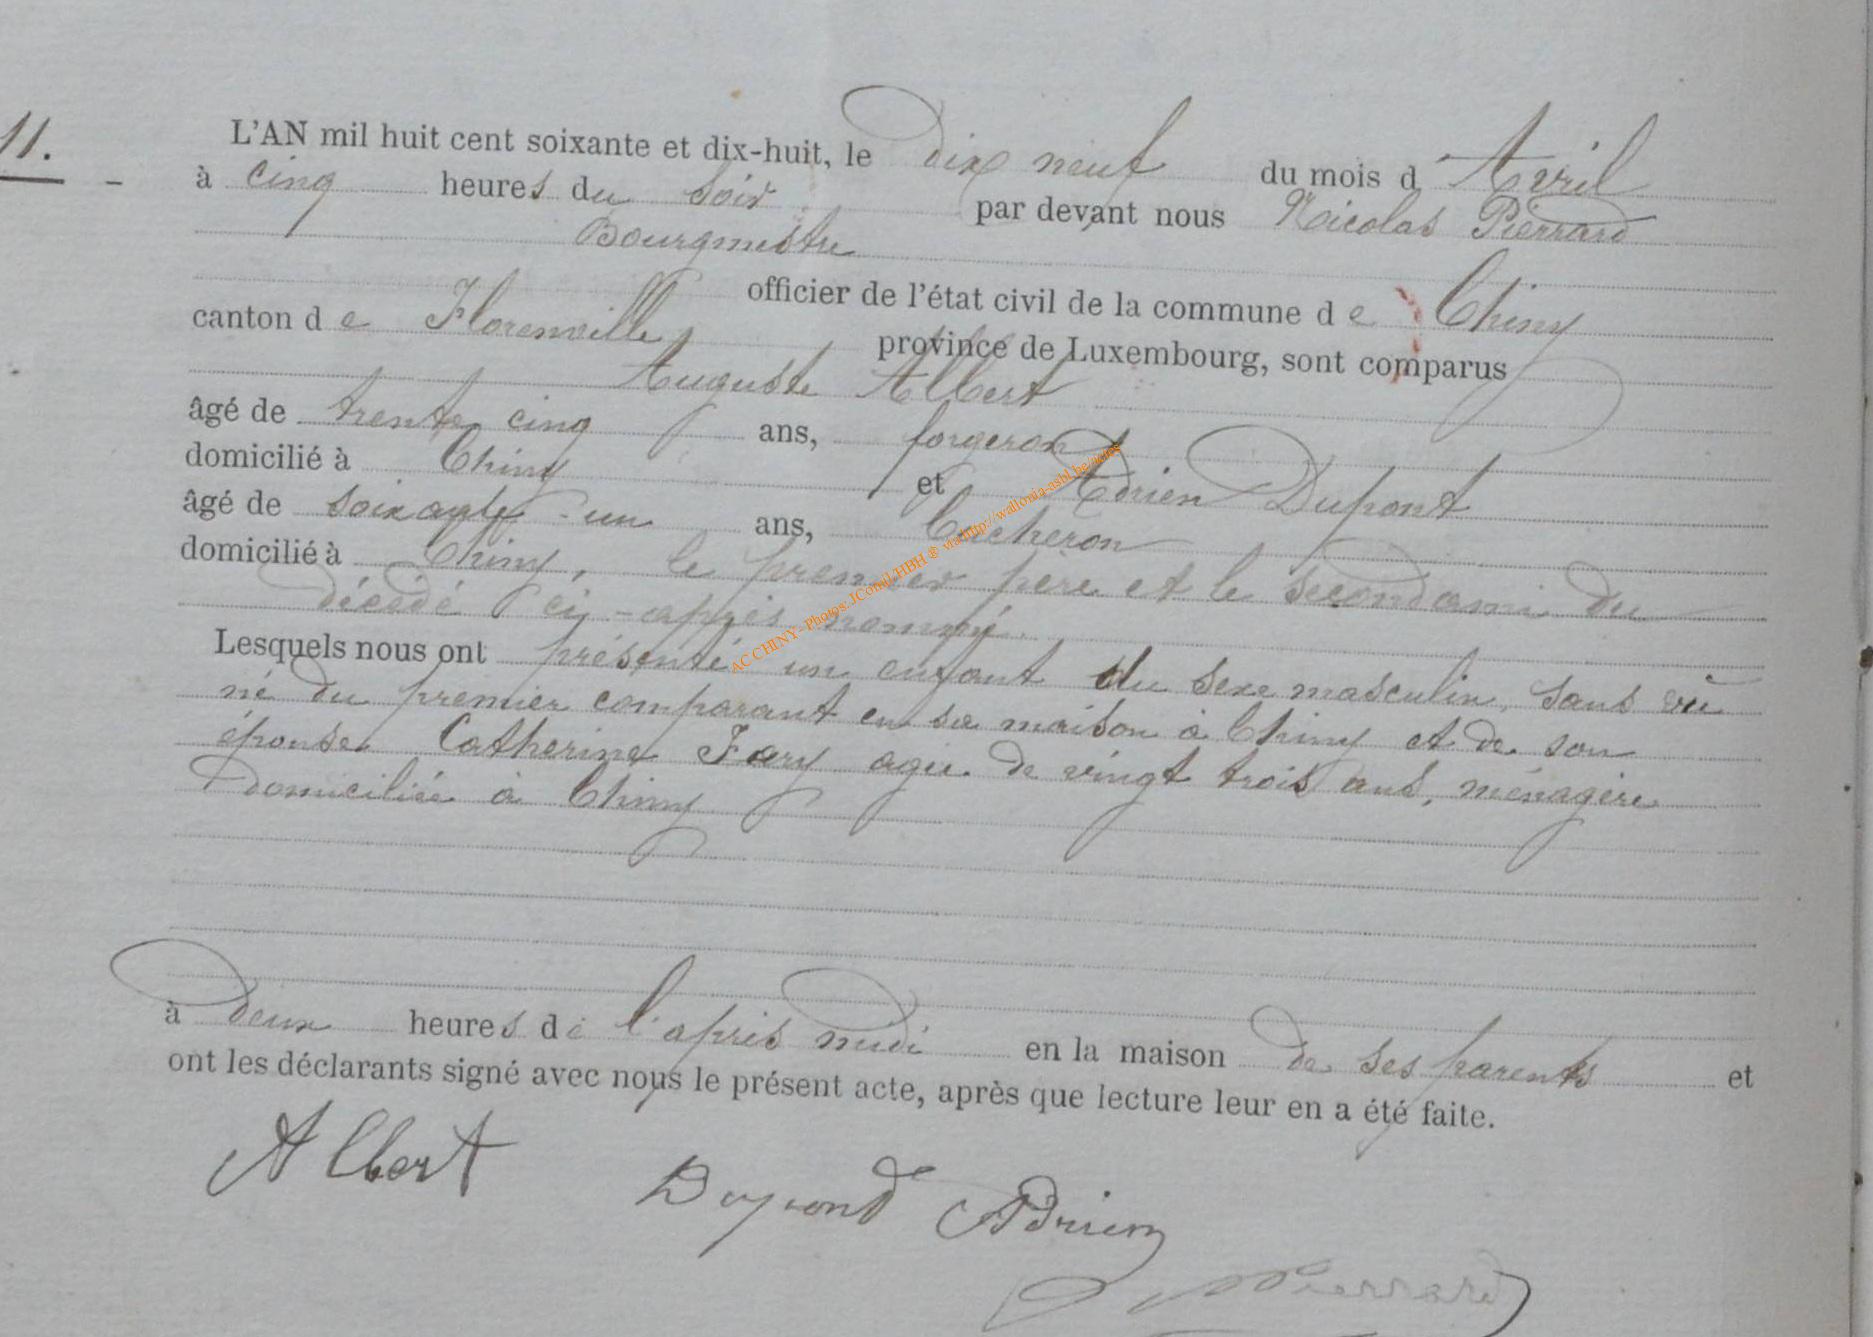 11.
L'AN mil huit cent soixante et dix-huit, le Dix neuf du mois d Avril
à cinq heures du soir par devant nous Nicolas Pierrard
Bourgmestre
officier de l'état civil de la commune de Chiny
canton de Florenville province de Luxembourg, sont comparus
Auguste Albert
âgé de trente cinq ans, forgeron
domicilié à Chiny et Adrien Dupont
âgé de soixante-un ans,
domicilié à Chiny, le premier père et le second ami du
décédé ci-après nommé.
Lesquels nous ont présenté un enfant du sexe masculin, sans vie
né du premier comparant en sa maison à Chiny et de son
épouse Catherine agée de vingt trois ans, ménagère
domiciliée à Chiny
à Deux heures de l'après midi en la maison de ses parents et
ont les déclarants signé avec nous le présent acte, après que lecture leur en a été faite.
Albert Dupond Adrien
Pierrard
AC CHINY - Photos: JCornil/HBH ® via http://wallonia-asbl.be/actes